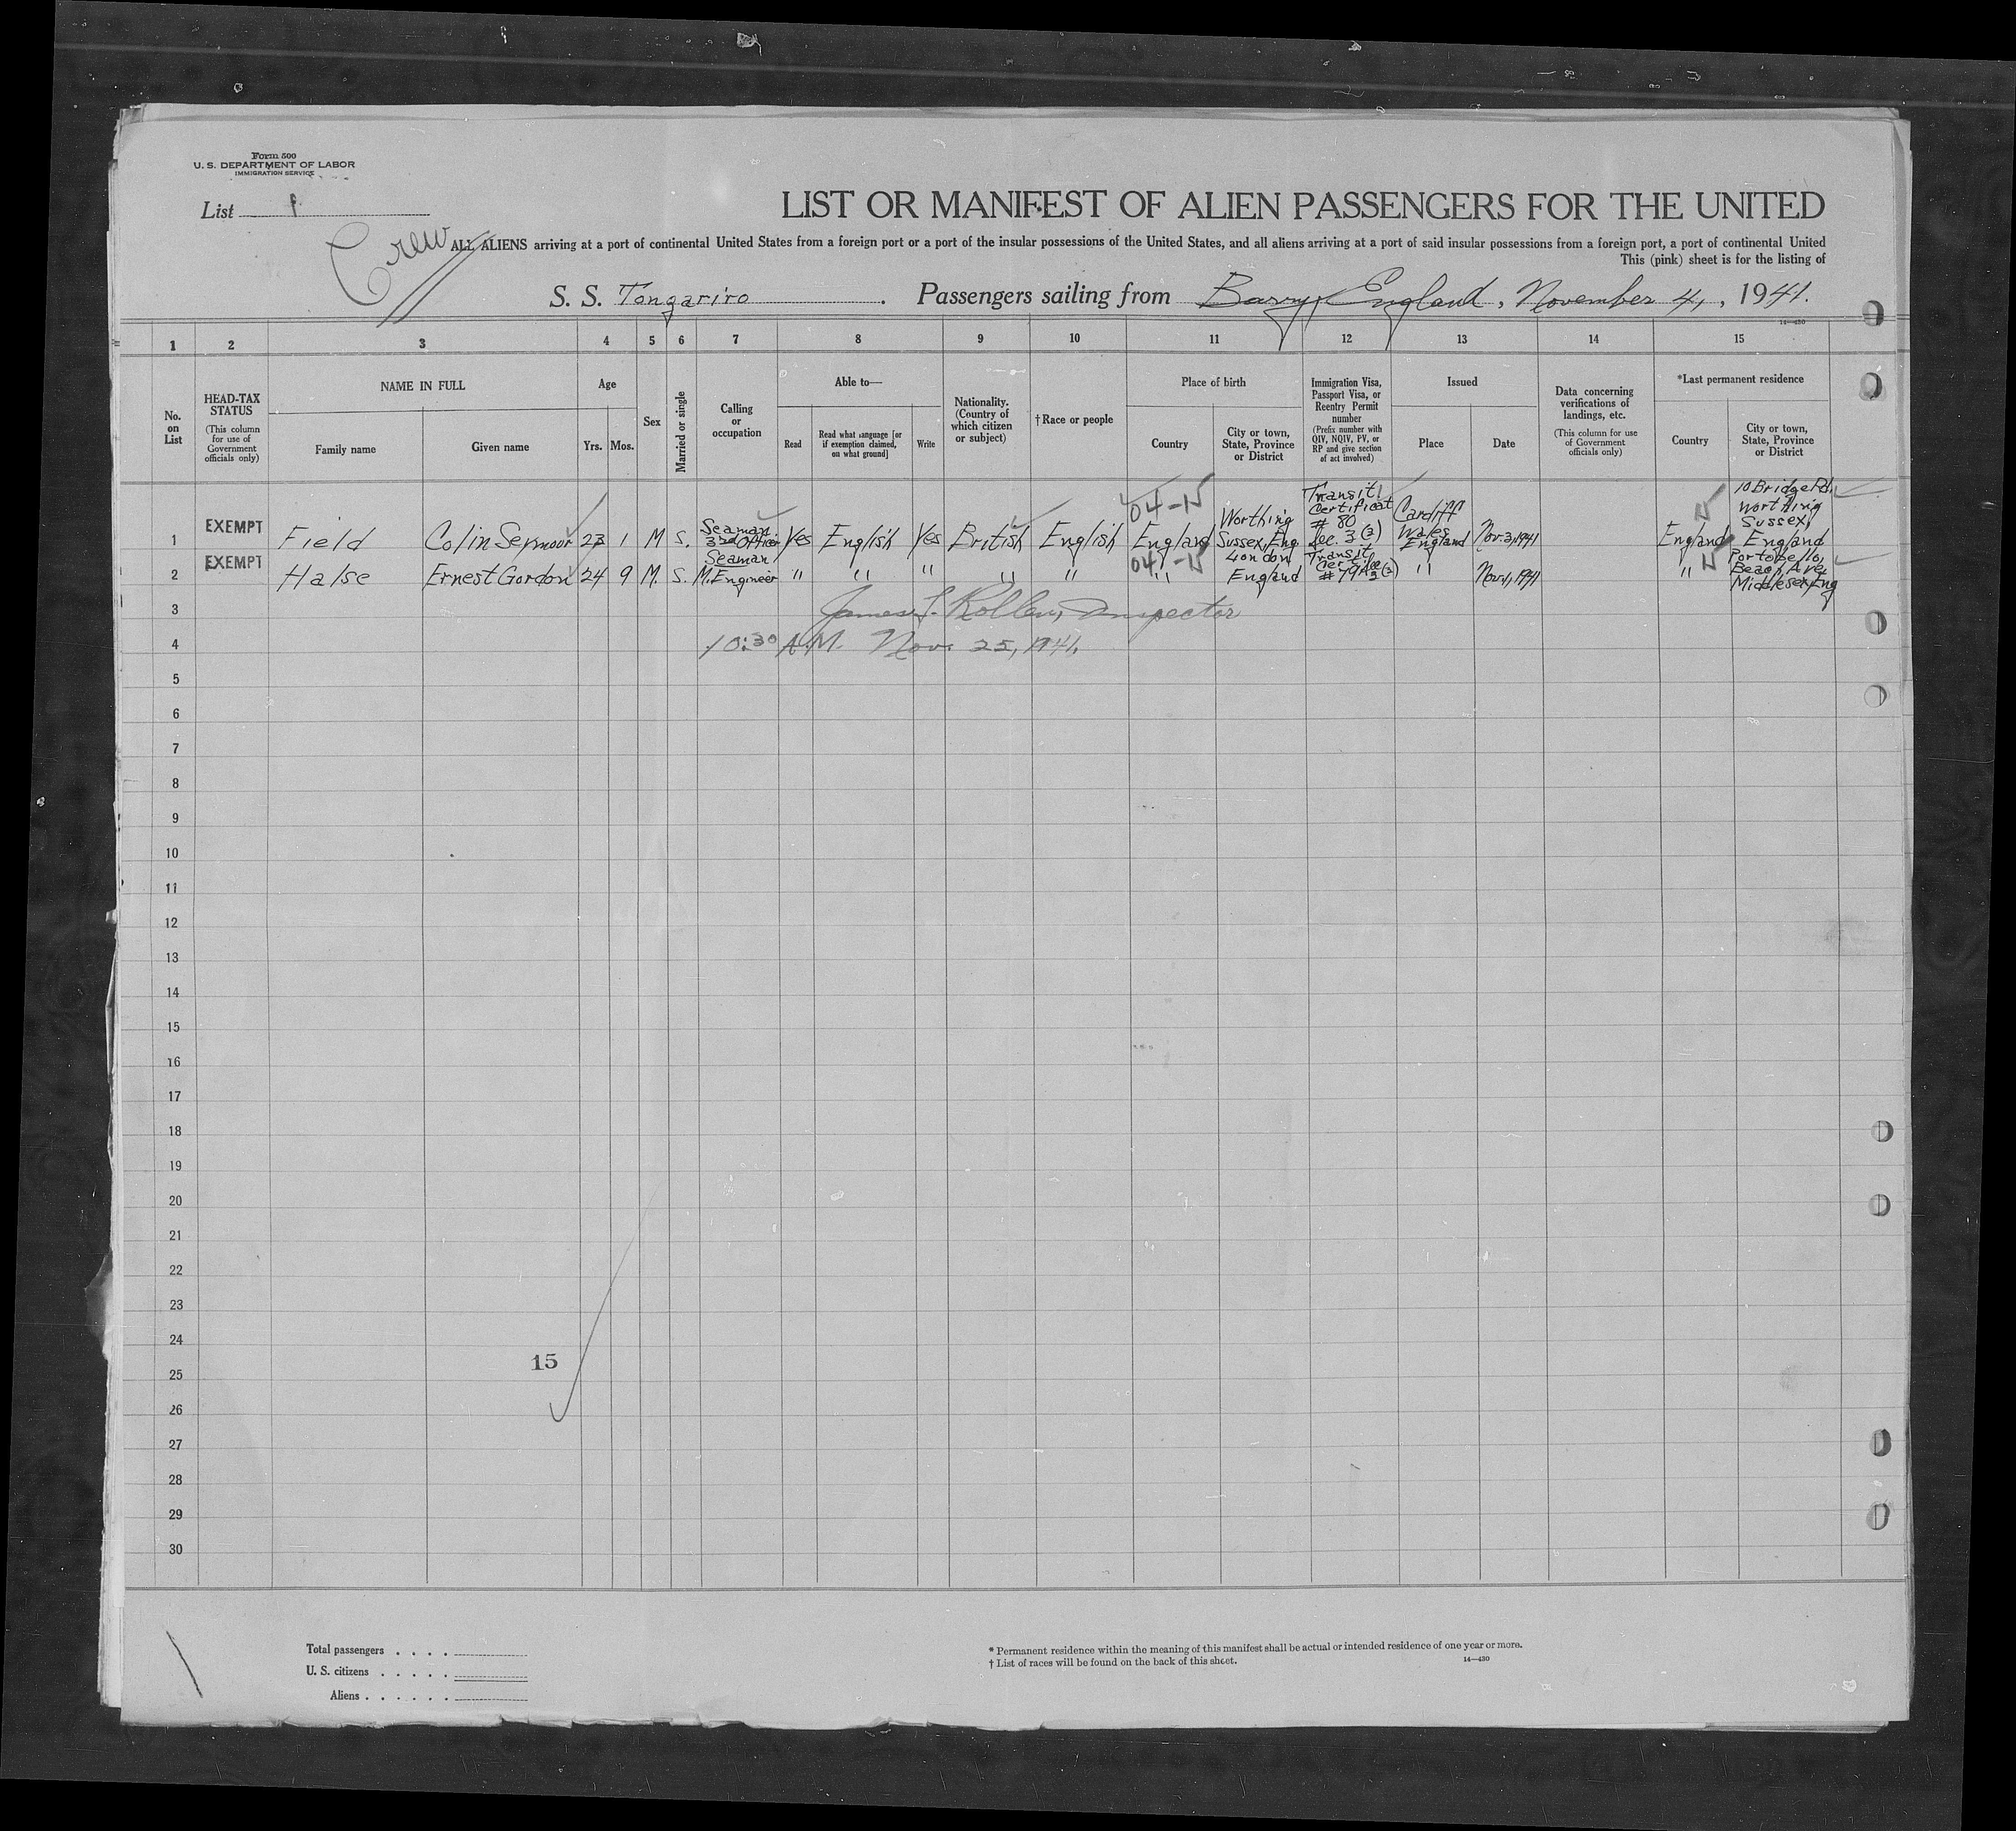 Form 500
U. S. DEPARTMENT OF LABOR
IMMIGRATION SERVICE
List
Crew
LIST OR MANIFEST OF ALIEN PASSENGERS FOR THE UNITED
ALL ALIENS arriving at a port of continental United States from a foreign port or a port of the insular possessions of the United States, and all aliens arriving at a port of said insular possessions from a foreign port, a port of continental United
This (pink) sheet is for the listing of
S. S. Tongariro . Passengers sailing from Barry, England, November 4, , 1941.
14—430
1 2 3 4 5 6 7 8 9 10 11 12 13 14 15
No. on List
HEAD-TAX STATUS (This column for use of Government officials only)
NAME IN FULL
Family name
Given name
Age
Yrs.
Mos.
Sex
Married or single
Calling or occupation
Able to—
Read
Read what language [or if exemption claimed, on what ground]
Write
Nationality. (Country of which citizen or subject)
† Race or people
Place of birth
Country
City or town, State, Province or District
Immigration Visa, Passport Visa, or Reentry Permit number (Prefix number with QIV, NQIV, PV, or RP and give section of act involved)
Issued
Place
Date
Data concerning verifications of landings, etc. (This column for use of Government officials only)
*Last permanent residence
Country
City or town, State, Province or District
1 EXEMPT Field Colin Seymour 23 1 M S. Seaman 3rd Officer Yes English Yes British English 04-15 England Worthing Sussex, Eng Transit Certificat # 80 Sec. 3 (3) Cardiff Wales England Nov. 3, 1941 England 10 Bridge Rd. Worthing Sussex, England
2 EXEMPT Halse Ernest Gordon 24 9 M. S. Seaman M. Engineer " " " " " 04-15 " London England Transit Certif # 79 (3) " Nov. 1, 1941 " Portobello, Ave, Middlesex, Eng
3 James Inspector
4 10:30 A.M. Nov. 25, 1941.
5
6
7
8
9
10
11
12
13
14
15
16
17
18
19
20
21
22
23
24
15
25
26
27
28
29
30
Total passengers . . . .
U. S. citizens . . . . .
Aliens . . . . . .
* Permanent residence within the meaning of this manifest shall be actual or intended residence of one year or more.
† List of races will be found on the back of this sheet.
14—430